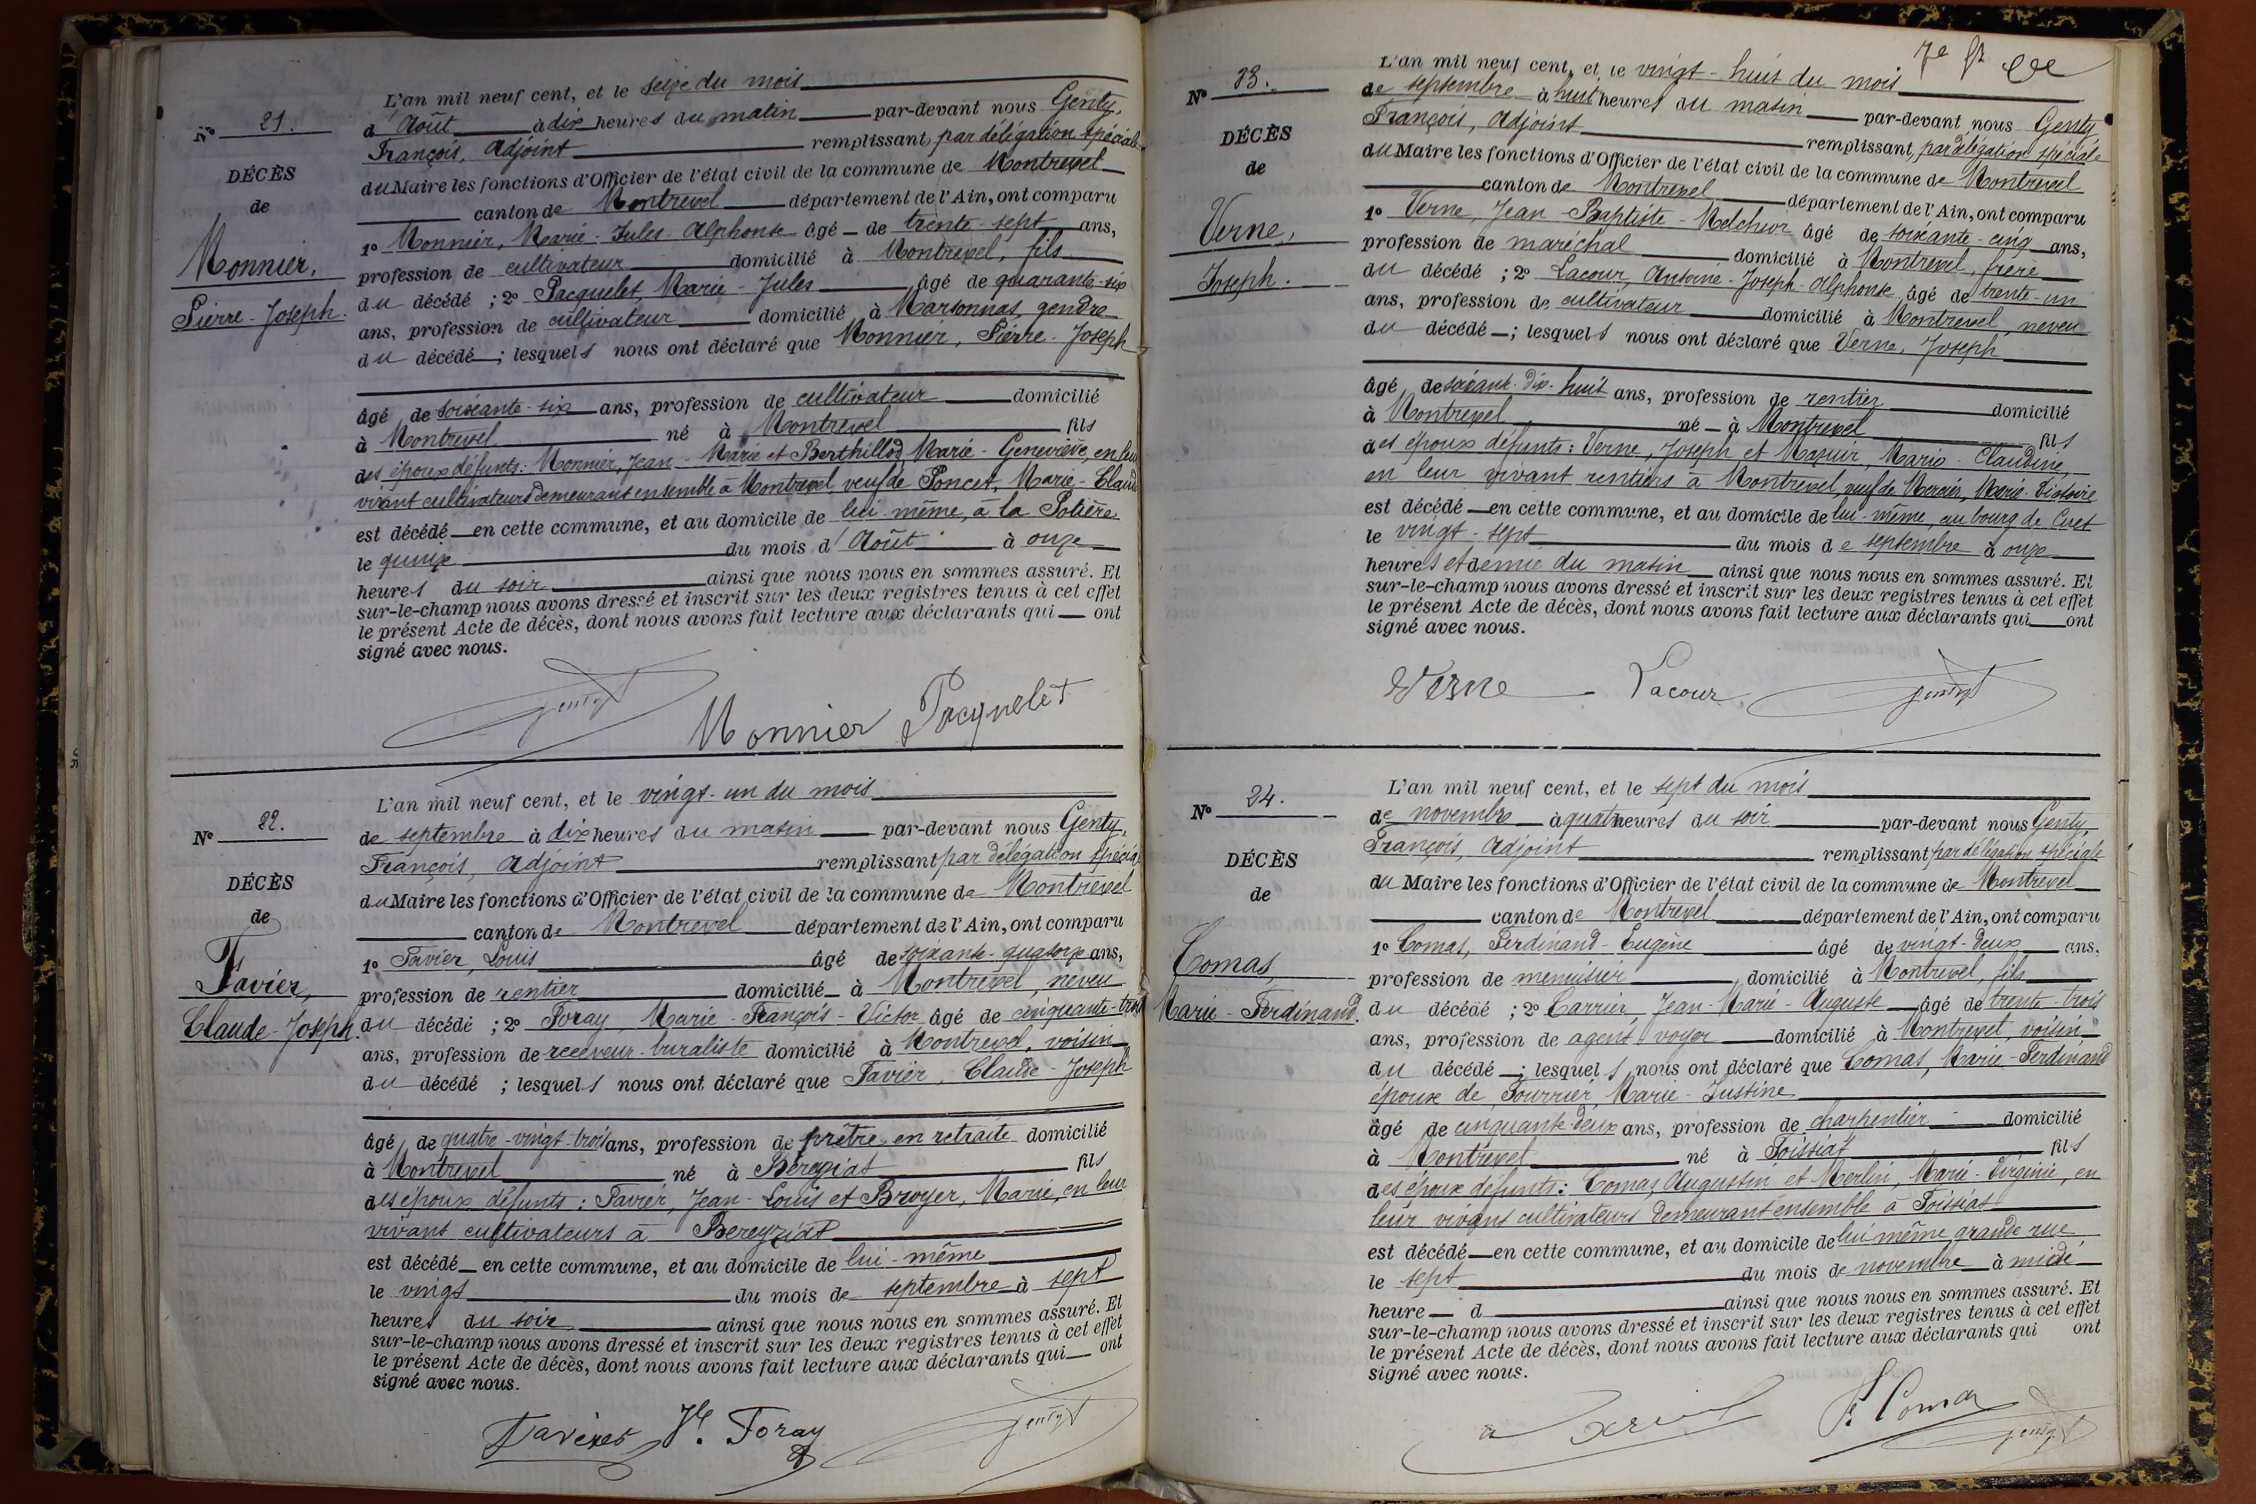 Nº 21.
DÉCÈS
de
Monnier,
Pierre-Joseph.
L'an mil neuf cent, et le seize du mois
d'Août à dix heures du matin par-devant nous Genty,
François, Adjoint remplissant par délégation spéciale
du Maire les fonctions d'Officier de l'état civil de la commune de Montrevel
canton de Montrevel département de l'Ain, ont comparu
1º Monnier, Marie-Jules-Alphonse âgé de trente-sept ans,
profession de cultivateur domicilié à Montrevel, fils
du décédé ; 2º Pacquelet, Marie-Jules âgé de quarante-six
ans, profession de cultivateur domicilié à Marsonnas, gendre
du décédé ; lesquels nous ont déclaré que Monnier, Pierre-Joseph
âgé de soixante-six ans, profession de cultivateur domicilié
à Montrevel né à Montrevel fils
des époux défunts : Monnier, Jean-Marie et Berthillod Marie-Geneviève, en leur
vivant cultivateurs demeurant ensemble à Montrevel, veuf de Poncet, Marie-Claud
est décédé en cette commune, et au domicile de lui-même, à la Polière
le quinze du mois d'Août à onze
heures du soir ainsi que nous nous en sommes assuré. Et
sur-le-champ nous avons dressé et inscrit sur les deux registres tenus à cet effet
le présent Acte de décès, dont nous avons fait lecture aux déclarants qui ont
signé avec nous.
Genty
Monnier Pacquelet
Nº 22.
DÉCÈS
de
Favier,
Claude-Joseph.
L'an mil neuf cent, et le vingt-un du mois
de septembre à dix heures du matin par-devant nous Genty,
François, Adjoint remplissant par délégation spécial
du Maire les fonctions d'Officier de l'état civil de la commune de Montrevel
canton de Montrevel département de l'Ain, ont comparu
1º Favier, Louis âgé de soixante-quatorze ans,
profession de rentier domicilié à Montrevel, neveu
du décédé ; 2º Foray, Marie-François-Victor âgé de cinquante-trois
ans, profession de receveur-buraliste domicilié à Montrevel, voisin
du décédé ; lesquels nous ont déclaré que Favier, Claude-Joseph
âgé de quatre-vingt-trois ans, profession de prêtre en retraite domicilié
à Montrevel né à Béreyziat fils
des époux défunts : Favier, Jean-Louis et Broyer, Marie, en leur
vivant cultivateurs à Béreyziat
est décédé en cette commune, et au domicile de lui-même
le vingt du mois de septembre à sept
heures du soir ainsi que nous nous en sommes assuré. Et
sur-le-champ nous avons dressé et inscrit sur les deux registres tenus à cet effet
le présent Acte de décès, dont nous avons fait lecture aux déclarants qui ont
signé avec nous.
Foray Genty
Nº 23.
DÉCÈS
de
Verne,
Joseph.
L'an mil neuf cent, et le vingt-huit du mois
de septembre à huit heures du matin par-devant nous Genty
François, Adjoint remplissant, par délégation spéciale
du Maire les fonctions d'Officier de l'état civil de la commune de Montrevel
canton de Montrevel département de l'Ain, ont comparu
1º Verne, Jean-Baptiste-Melchior âgé de soixante-cinq ans,
profession de maréchal domicilié à Montrevel, frère
du décédé ; 2º Lacour, Antoine-Joseph-Alphonse âgé de trente-un
ans, profession de cultivateur domicilié à Montrevel, neveu
du décédé ; lesquels nous ont déclaré que Verne, Joseph
âgé de soixante-dix-huit ans, profession de rentier domicilié
à Montrevel né à Montrevel fils
des époux défunts : Verne, Joseph et Mazuir, Marie-Claudine,
en leur vivant rentiers à Montrevel, veuf de Mercier, Marie-Victoire
est décédé en cette commune, et au domicile de lui-même, au bourg de Cuet
le vingt-sept du mois de septembre à onze
heures et demie du matin ainsi que nous nous en sommes assuré. Et
sur-le-champ nous avons dressé et inscrit sur les deux registres tenus à cet effet
le présent Acte de décès, dont nous avons fait lecture aux déclarants qui ont
signé avec nous.
Verne Lacour Genty
Nº 24.
DÉCÈS
de
Comas,
Marie-Ferdinand.
L'an mil neuf cent, et le sept du mois
de novembre à quatre heures du soir par-devant nous Genty,
François, Adjoint remplissant par délégation spéciale
du Maire les fonctions d'Officier de l'état civil de la commune de Montrevel
canton de Montrevel département de l'Ain, ont comparu
1º Comas, Ferdinand-Eugène âgé de vingt-deux ans,
profession de menuisier domicilié à Montrevel, fils
du décédé ; 2º Carrier, Jean-Marie-Auguste âgé de trente-trois
ans, profession de agent voyer domicilié à Montrevel, voisin
du décédé ; lesquels nous ont déclaré que Comas, Marie-Ferdinand
époux de Fourrier, Marie-Justine
âgé de cinquante-deux ans, profession de charpentier domicilié
à Montrevel né à Foissiat fils
des époux défunts : Comas, Augustin et Merlin, Marie-Virginie, en
leur vivant cultivateurs demeurant ensemble à Foissiat
est décédé en cette commune, et au domicile de lui-même grande rue,
le sept du mois de novembre à midi
heure d ainsi que nous nous en sommes assuré. Et
sur-le-champ nous avons dressé et inscrit sur les deux registres tenus à cet effet
le présent Acte de décès, dont nous avons fait lecture aux déclarants qui ont
signé avec nous.
Comas Genty